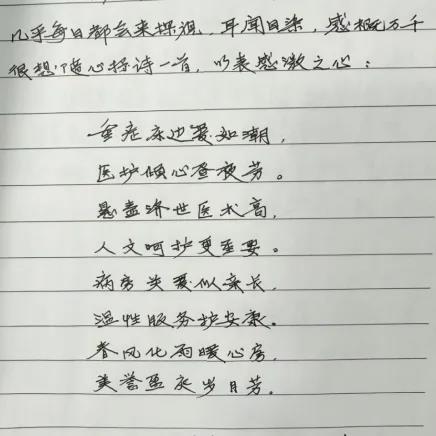 几乎每日都会来探视，耳闻目染，感概万千
很想随心抒诗一首，以表感激之心：
重症床边爱如潮，
医护倾心昼夜劳。
悬壶济世医术高，
人文呵护更重要。
病房关爱似亲长，
温性服务护安康。
春风化雨暖心房，
美誉盈灰岁月芳。